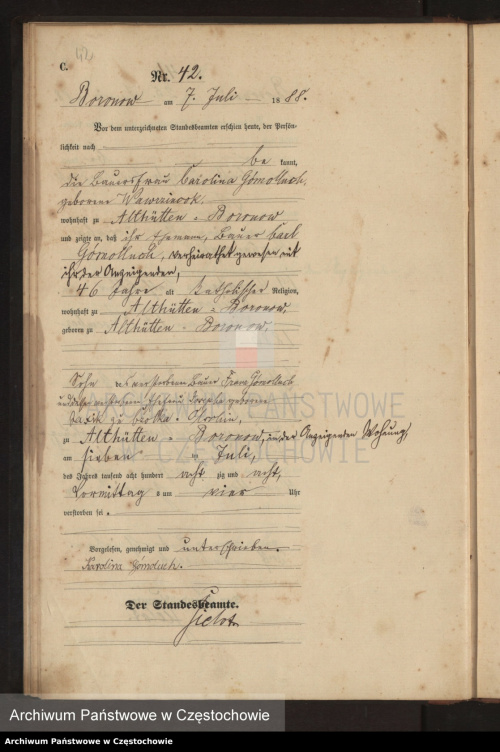 C.
Nr. 42.
Boronow am 7. Juli 1888.
Vor dem unterzeichneten Standesbeamten erschien heute, der Persön-
lichkeit nach
be kannt,
die Bauersfrau Carolina Gómolluch,
geborene Wawrzinczok,
wohnhaft zu Althütten - Boronow
und zeigte an, daß ihr Ehemann, Bauer Carl
Gómolluch, verheirathet gewesen mit
ihr der Anzeigenden,
46 Jahre alt katholischer Religion,
wohnhaft zu Althütten - Boronow,
geboren zu Althütten - Boronow,
Sohn des verstorbenen Bauer Franz Gómolluch
und dessen verstorbenen Ehefrau geborene
zu
zu Althütten - Boronow, in der Anzeigenden Wohnung,
am sieben ten Juli,
des Jahres tausend acht hundert acht zig und acht,
Vormittag s um vier Uhr
verstorben sei.
Vorgelesen, genehmigt und unterschrieben.
Karolina Gómoluch.
Der Standesbeamte.
ARCHIWUM PAŃSTWOWE
W CZĘSTOCHOWIE
Archiwum Państwowe w Częstochowie
Archiwum Państwowe w Częstochowie